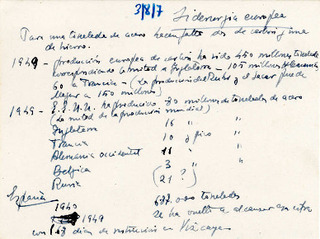 3/8/7
Siderurgia europea
Para una tonelada de acero hacen falta dos de carbón y una
de hierro.
1949 - producción europea de carbón ha sido 450 millones toneladas
correspondiendo la mitad a Inglaterra - 105 millones Alemania
60 a Francia - (La producción del Ruhr y el Sarre puede
llegar a 150 millones)
1949 - E.E.U.U. ha producido 70 millones de toneladas de acero
(La mitad de la producción mundial)
Inglaterra 16 " "
Francia 10 y pico "
Alemania occidental 11 "
Belgica 3 "
Rusia (21?) "
España
1949
toneladas
se ha vuelto a alcanzar esa cifra
con 163 días de restricción en Vizcaya